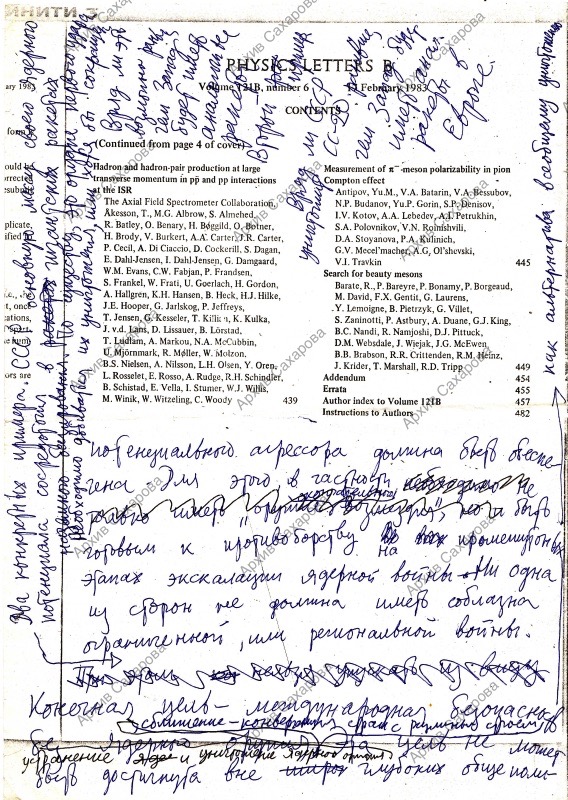 PHYSICS LETTERS B
Volume 121B, number 6
17 February 1983
CONTENTS
(Continued from page 4 of cover)
Hadron and hadron-pair production at large
transverse momentum in pp̄ and pp interactions
at the ISR
The Axial Field Spectrometer Collaboration,
Åkesson, T., M.G. Albrow, S. Almehed,
R. Batley, O. Benary, H. Bøggild, O. Botner,
H. Brody, V. Burkert, A.A. Carter, J.R. Carter,
P. Cecil, A. Di Ciaccio, D. Cockerill, S. Dagan,
E. Dahl-Jensen, I. Dahl-Jensen, G. Damgaard,
W.M. Evans, C.W. Fabjan, P. Frandsen,
S. Frankel, W. Frati, U. Goerlach, H. Gordon,
A. Hallgren, K.H. Hansen, B. Heck, H.J. Hilke,
J.E. Hooper, G. Jarlskog, P. Jeffreys,
T. Jensen, G. Kesseler, T. Killian, K. Kulka,
J. v.d. Lans, D. Lissauer, B. Lörstad,
T. Ludlam, A. Markou, N.A. McCubbin,
U. Mjörnmark, R. Møller, W. Molzon,
B.S. Nielsen, A. Nilsson, L.H. Olsen, Y. Oren,
L. Rosselet, E. Rosso, A. Rudge, R.H. Schindler,
B. Schistad, E. Vella, I. Stumer, W.J. Willis,
M. Winik, W. Witzeling, C. Woody 439
Measurement of π⁻-meson polarizability in pion
Compton effect
Antipov, Yu.M., V.A. Batarin, V.A. Bessubov,
N.P. Budanov, Yu.P. Gorin, S.P. Denisov,
I.V. Kotov, A.A. Lebedev, A.I. Petrukhin,
S.A. Polovnikov, V.N. Roinishvili,
D.A. Stoyanova, P.A. Kulinich,
G.V. Mecel'macher, A.G. Ol'shevski,
V.I. Travkin 445
Search for beauty mesons
Barate, R., P. Bareyre, P. Bonamy, P. Borgeaud,
M. David, F.X. Gentit, G. Laurens,
Y. Lemoigne, B. Pietrzyk, G. Villet,
S. Zaninotti, P. Astbury, A. Duane, G.J. King,
B.C. Nandi, R. Namjoshi, D.J. Pittuck,
D.M. Websdale, J. Wiejak, J.G. McEwen
B.B. Brabson, R.R. Crittenden, R.M. Heinz,
J. Krider, T. Marshall, R.D. Tripp 449
Addendum 454
Errata 455
Author index to Volume 121B 457
Instructions to Authors 482
потенциального агрессора должна быть обеспе-
чена Для этого, в частности необходимо не
только иметь "оружие возмездия", но и быть
готовым к противоборству на промежуточных
этапах эскалации ядерной войны. Ни одна
из сторон не должна иметь соблазна
ограниченной, или региональной войны.
При этом нельзя упускать из виду
Конечная цель – международная безопасность
сближение – конвергенция стран с различным строем
без ядерного оружия Эта цель не может
устранение и уничтожение ядерного
быть достигнута вне глубоких обще поли-
Два конкретных примера. СССР основную часть своего ядерного
потенциала сосредоточил в гигантских ракетах
наземного базирования.
Необходимо добиваться их уничтожения, или хотя бы сокращения
Вряд ли это
возможно раньше
чем Запад
будет иметь
аналогичные
ракеты
Второй
Вряд ли
уничтожит
СС-20
чем Запад будет
ракеты в
Европе.
как альтернатива всеобщему уничтожению
Архив Сахарова